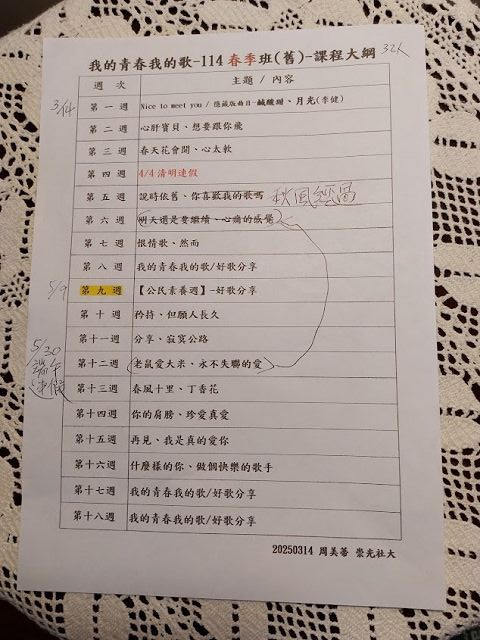 我的青春我的歌-114 春季班(舊)-課程大綱 32人
週 次 主題 / 內容
3/14
第 一 週 Nice to meet you / 隱藏版曲目-鹹酸甜、月光(李健)
第 二 週 心肝寶貝、想要跟你飛
第 三 週 春天花會開、心太軟
第 四 週 4/4 清明連假
第 五 週 說時依舊、你喜歡我的歌嗎 秋風經過
第 六 週 明天還是要繼續、心痛的感覺
第 七 週 恨情歌、然而
第 八 週 我的青春我的歌/好歌分享
5/9 第 九 週 【公民素養週】-好歌分享
第 十 週 矜持、但願人長久
第十一週 分享、寂寞公路
5/30 端午連假
第十二週 老鼠愛大米、永不失聯的愛
第十三週 春風十里、丁香花
第十四週 你的肩膀、珍愛真愛
第十五週 再見、我是真的愛你
第十六週 什麼樣的你、做個快樂的歌手
第十七週 我的青春我的歌/好歌分享
第十八週 我的青春我的歌/好歌分享
20250314 周美蒂 崇光社大